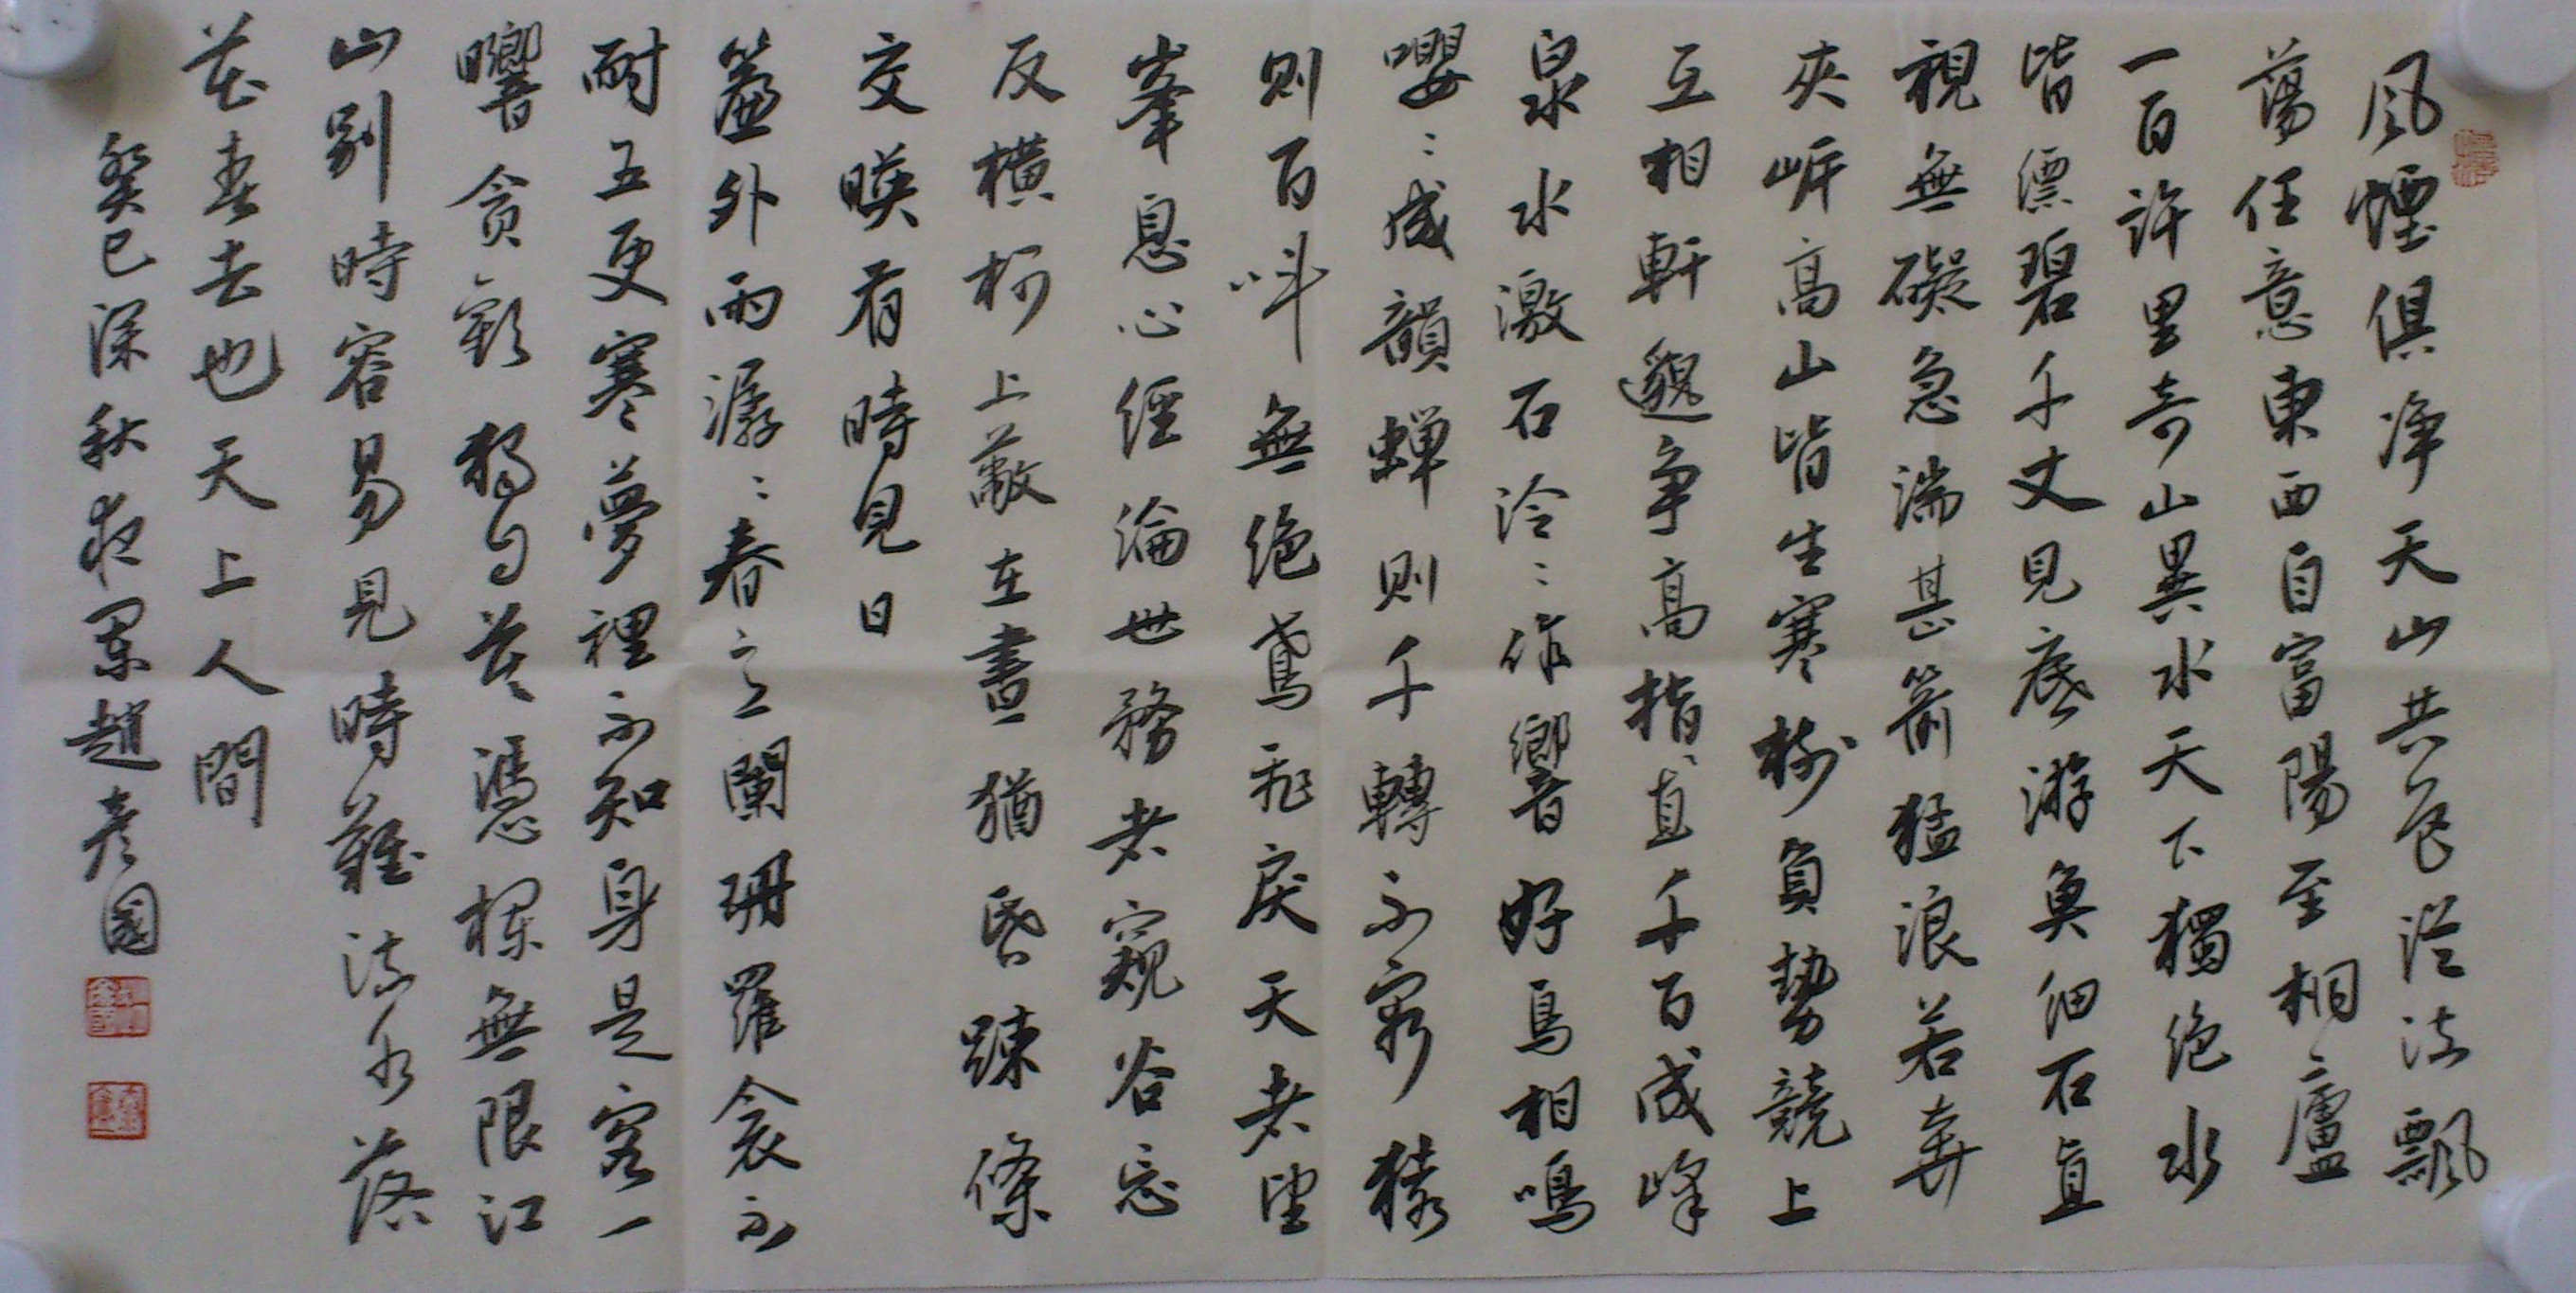 風煙俱净天山共色從流飄
蕩任意東西自富陽至桐廬
一百許里奇山異水天下獨絶水
皆縹碧千丈見底游魚細石直
視無礙急湍甚箭猛浪若奔
夾岸高山皆生寒樹負勢競上
互相軒邈争高指直千百成峰
泉水激石泠泠作響好鳥相鳴
嚶嚶成韻蟬則千轉不窮猿
則百叫無絶鳶飛戾天者望
峯息心經綸世務者窺谷忘
反橫柯上蔽在晝猶昏疎條
交暎有時見日
簾外雨潺潺春意闌珊羅衾不
耐五更寒夢裡不知身是客一
嚮貪歡獨自莫憑欄無限江
山别時容易見時難流水落
花春去也天上人間
癸巳深秋夜墨趙彦國